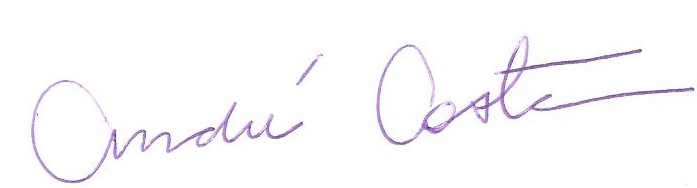 André Costa